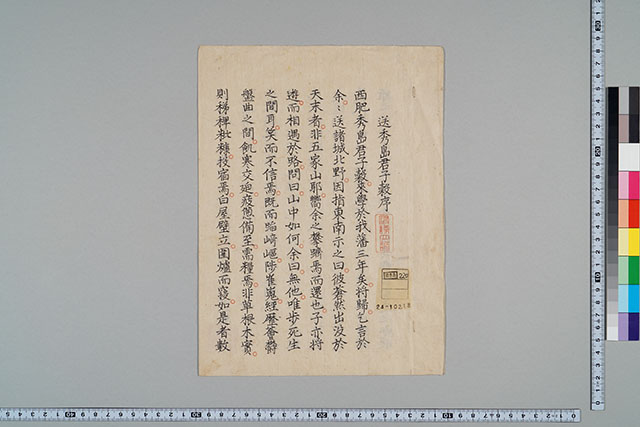 送秀島君子毅序
西肥秀島君子毅來學於我藩三年矣將歸乞言於
余々送諸城北野因指東南示之曰彼蒼然出沒於
天末者非五家山耶嚮余之攀躋焉而還也子亦將
遊而相遇於路問曰山中如何余曰無他唯步死生
之間耳笑而不信焉既而踰崎嶇陟崔嵬經歷蓊鬱
盤曲之間飢寒交迫疲憊備至需糧焉非草根木實
則稊稗粃糠投宿焉白屋壁立圍爐而寢如是者數